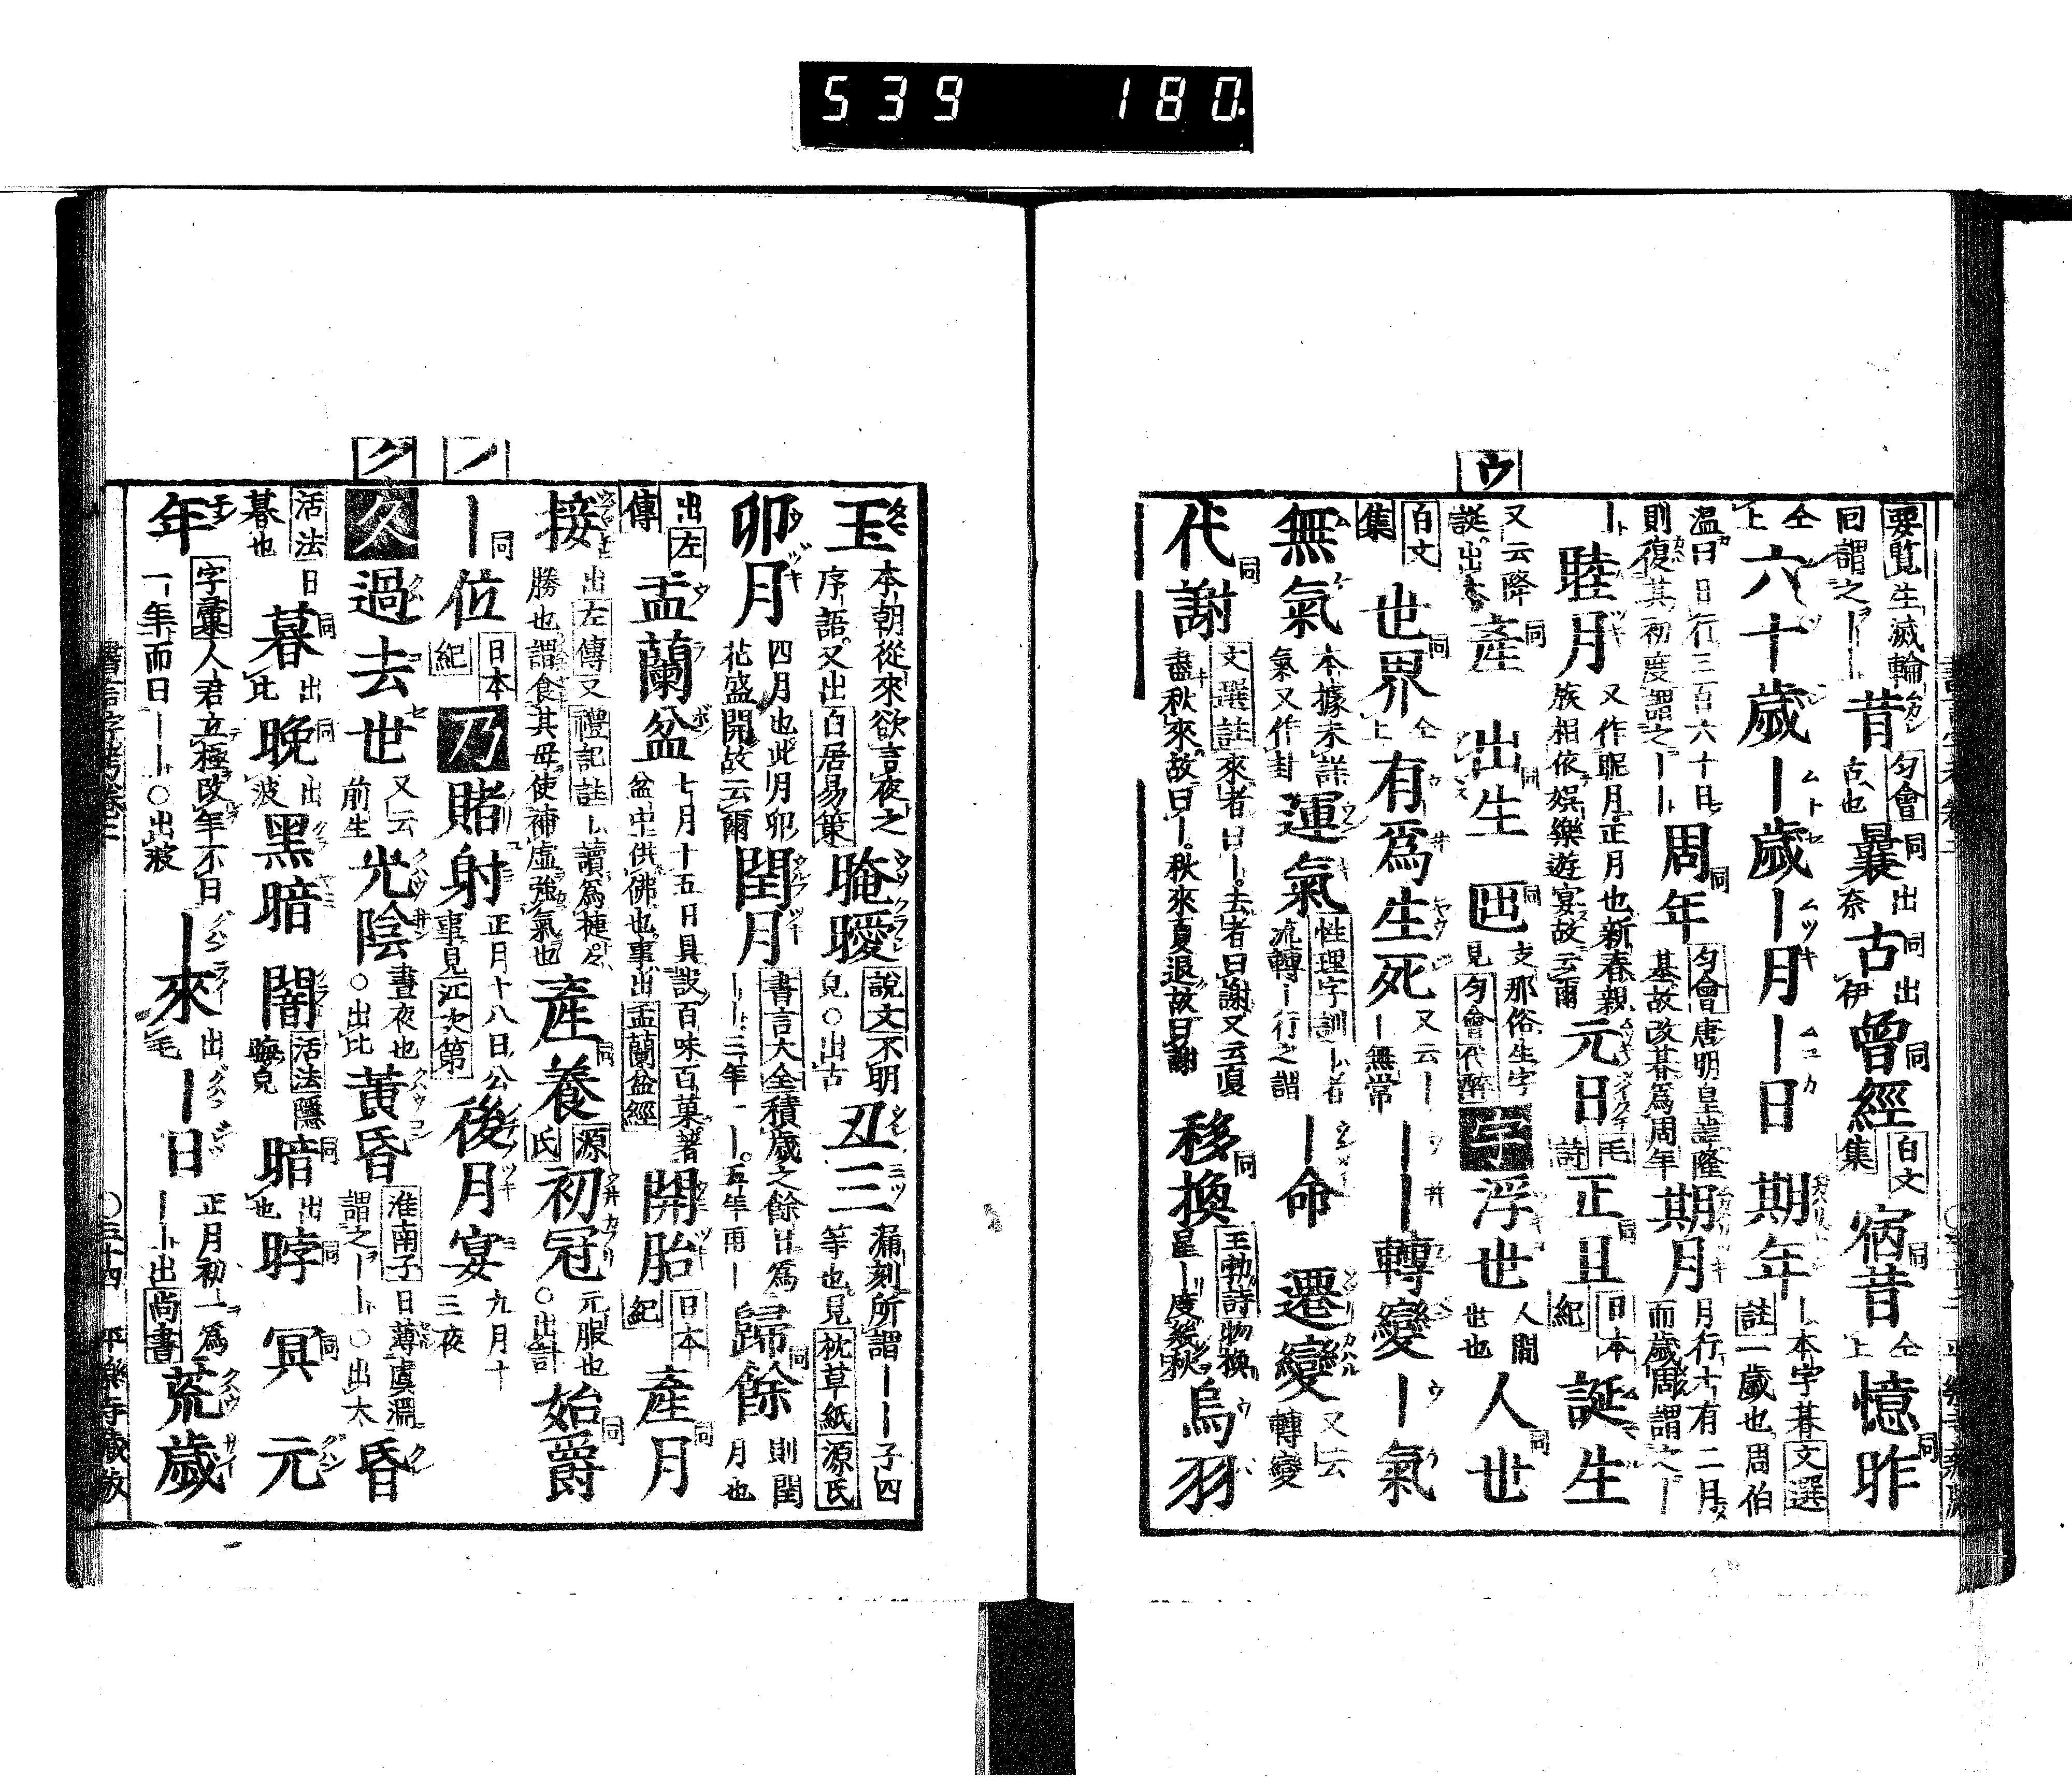 539 180
ウ
要覧生滅輪
回謂之｜｜昔 匀會古也 曩 同出奈 古 同出伊 曾經 同白文集 宿昔 同仝上 憶昨 同
仝上 六十歳 ｜歳 ｜月 ｜日 期年 ｜本字朞文選註一歳也周伯
温曰日行三百六十日則復其初度謂之｜｜ 周年 同匀會唐明皇諱隆基故改朞為周年 期月 月行十有二月而歳周謂之｜
｜ 睦月 又作昵月正月也新春親族相依娯樂遊宴故云爾 元日 毛詩 正旦 同日本紀 誕生
又云降誕出本 産 同 出生 同 㔾 同支那俗生字見匀會代醉 宇 浮世 人間世也 人世 同
白文集 世界 同仝上 有為 生死 又云｜｜無常 ｜｜轉變 ｜氣
無氣 本據未詳氣又作卦 運氣 性理字訓｜者流轉｜行之謂 ｜命 遷變 又云轉變
代謝 同文選註來者曰｜去者曰謝又云夏盡秋來故曰｜秋來夏退故曰謝 移換 同王勃詩物換星｜度幾秋 烏羽
ノ
ク
玉 本朝從來欲言夜之序語又出白居易策 晻曖 説文不明皃○出古 丑三 漏刻所謂｜｜子四等也見枕草紙源氏
卯月 四月也此月卯花盛開故云爾 閏月 書言大全積歳之餘日為｜｜三年一｜五年再｜ 歸餘 同則閏月也
出左傳 盂蘭盆 七月十五日具設百味百菓著盆中供佛也事出盂蘭盆經 開胎 日本紀 産月 同
接 出左傳又禮記註｜讀為捷勝也謂食其母使補虚強氣也 産養 同源氏 初冠 元服也○出計 始爵 同
｜位 同日本紀 乃 賭射 正月十八日公事見江次第 後月宴 九月十三夜
久 過去世 又云前生 光陰 晝夜也○出比 黄昏 淮南子曰薄虞淵謂之｜｜○出太 昏
活法日暮也 暮 同出比 晩 同出波 黒暗 闇 活法隱晦皃 暗 同出也 晬 同 冥 同 元
年 字彙人君立極改年不曰一年而曰｜｜○出波 ｜來 出毛 ｜日 正月初一為｜｜出尚書 荒歳
書言字考巻二 ○三十四 平樂寺藏板